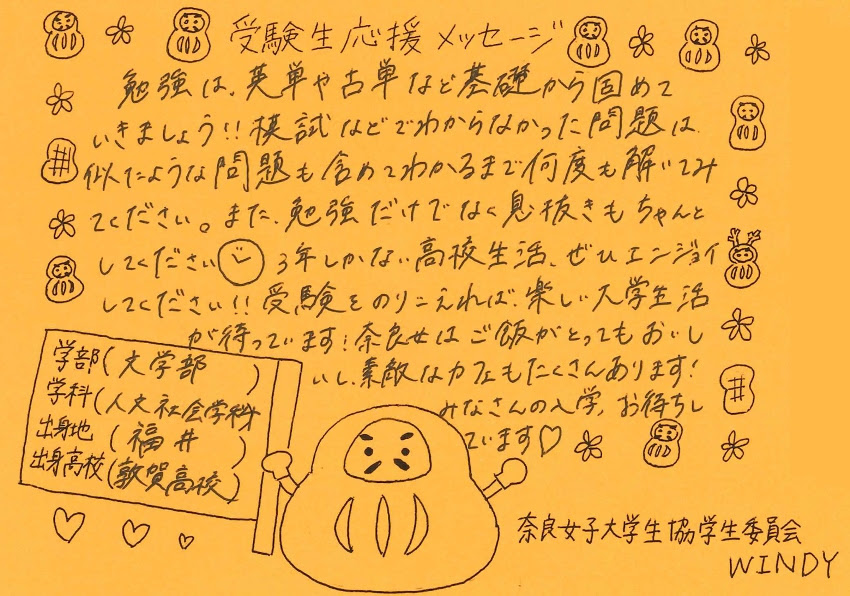 受験生応援メッセージ
勉強は、英単や古単など基礎から固めて
いきましょう!!模試などでわからなかった問題は、
似たような問題も含めてわかるまで何度も解いてみ
てください。また、勉強だけでなく息抜きもちゃんと
してください 3年しかない高校生活、ぜひエンジョイ
してください!!受験をのりこえれば、楽しい大学生活
が待っています!奈良女はご飯がとってもおいし
いし、素敵なカフェもたくさんあります!
みなさんの入学、お待ちし
ています♡
学部(文学部)
学科(人文社会学科)
出身地(福井)
出身高校(敦賀高校)
奈良女子大学生協学生委員会
WINDY